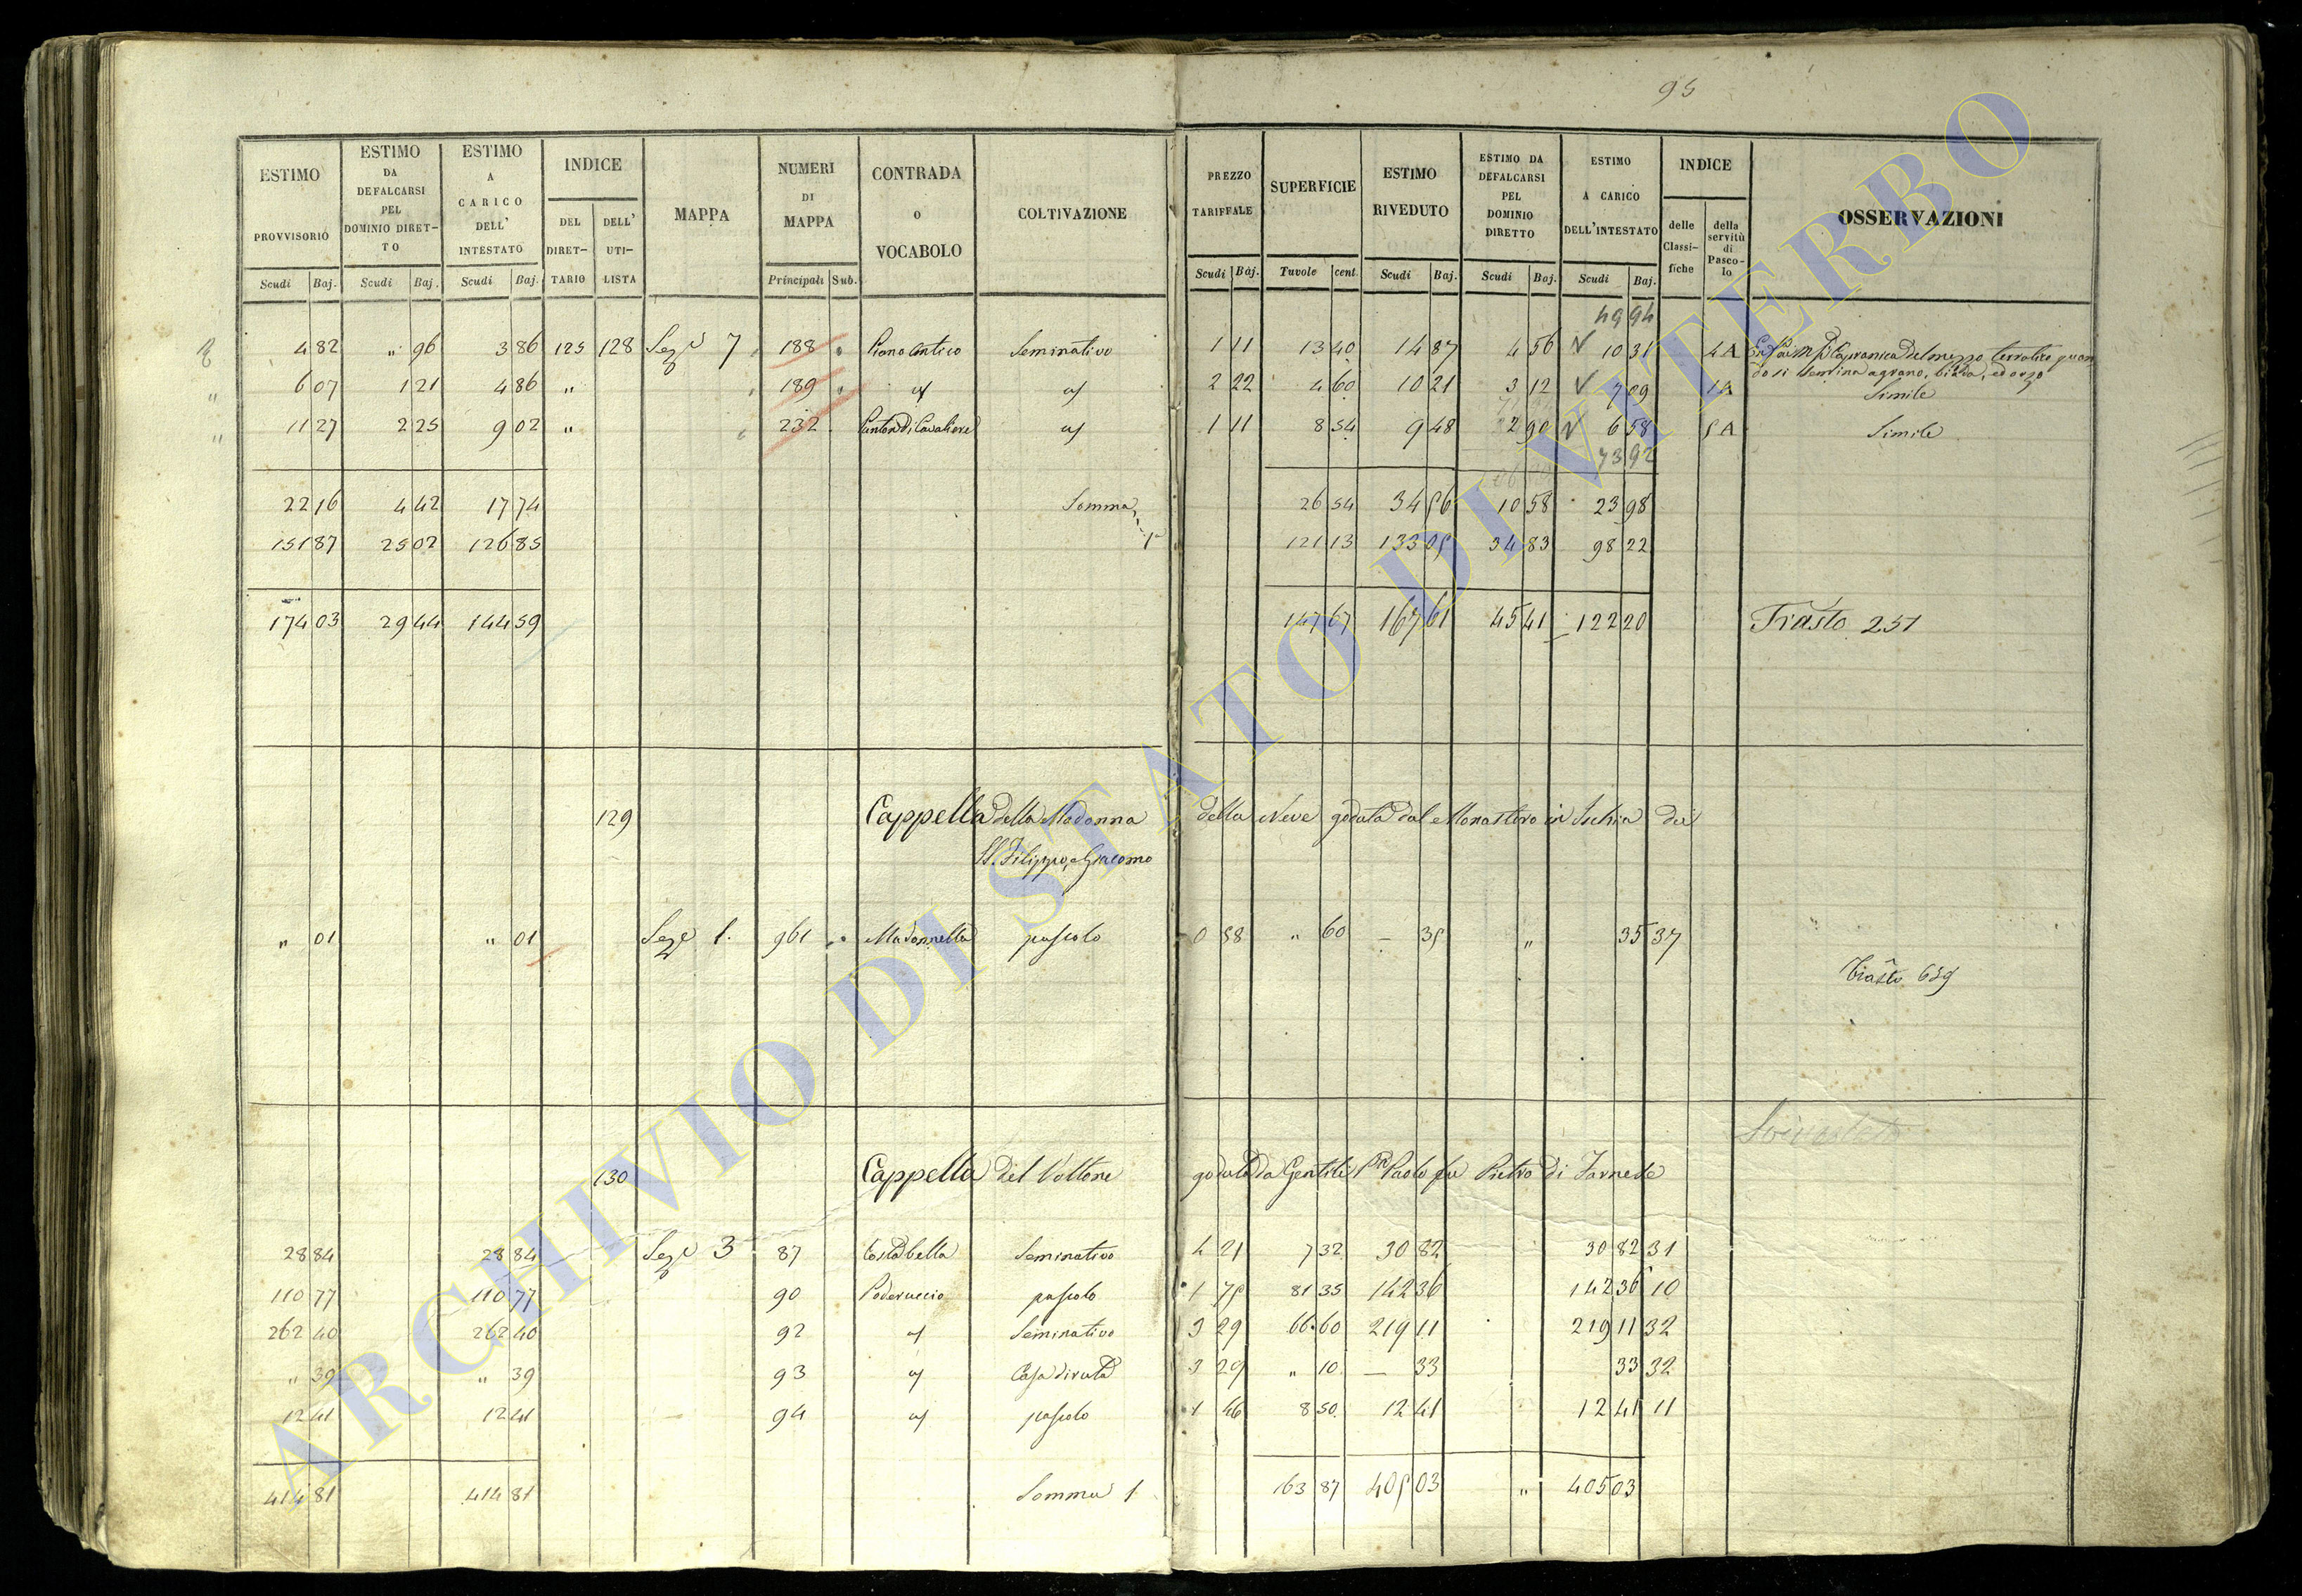 95
ESTIMO PROVVISORIO Scudi Baj.
ESTIMO DA DEFALCARSI PEL DOMINIO DIRETTO Scudi Baj.
ESTIMO A CARICO DELL' INTESTATO Scudi Baj.
INDICE DEL DIRETTARIO DELL' UTILISTA
MAPPA
NUMERI DI MAPPA Principali Sub.
CONTRADA O VOCABOLO
COLTIVAZIONE
PREZZO TARIFFALE Scudi Baj.
SUPERFICIE Tavole cent.
ESTIMO RIVEDUTO Scudi Baj.
ESTIMO DA DEFALCARSI PEL DOMINIO DIRETTO Scudi Baj.
ESTIMO A CARICO DELL'INTESTATO Scudi Baj.
INDICE delle Classifiche della servitù di Pascolo
OSSERVAZIONI
49 94
4 82 " 96 3 86 125 128 Seze 7 188 Piano Antico Seminativo 1 11 13 40 14 87 4 56 √ 10 31 4 A
del mezzo terratico quan
do si semina a grano, biada, ed orzo
6 07 1 21 4 86 " 189 " 2 22 4 60 10 21 3 12 √ 7 09 1 A Simile
11 27 2 25 9 02 " 232 Canton di Cavaliere 1 11 8 54 9 48 2 90 √ 6 58 5 A Simile
73 92
22 16 4 42 17 74 Somma 26 54 34 56 10 58 23 98
151 87 25 02 126 85 1 121 13 133 05 34 83 98 22
174 03 29 44 144 59 147 67 167 61 45 41 122 20 Trasto 251
129 Cappella della Madonna della Neve goduta dal Monastero in Ischia dei
SS. Filippo, e Giacomo
" 01 " 01 Seze 1. 961 Madonnella pascolo 0 58 " 60 — 35 " 35 37
Trasto 659
130 Cappella del Voltone goduta da Gentili Paolo fu Pietro di Farnese
28 84 28 84 Seze 3 87 Costa bella Seminativo 4 21 7 32 30 82 30 82 31
110 77 110 77 90 Poderuccio pascolo 1 75 81 35 142 36 142 36 10
262 40 262 40 92 Seminativo 3 29 66 60 219 11 219 11 32
" 39 " 39 93 Casa diruta 3 29 " 10 — 33 33 32
12 41 12 41 94 pascolo 1 46 8 50 12 41 12 41 11
414 81 414 81 Somma 1 163 87 405 03 " 405 03
ARCHIVIO DI STATO DI VITERBO